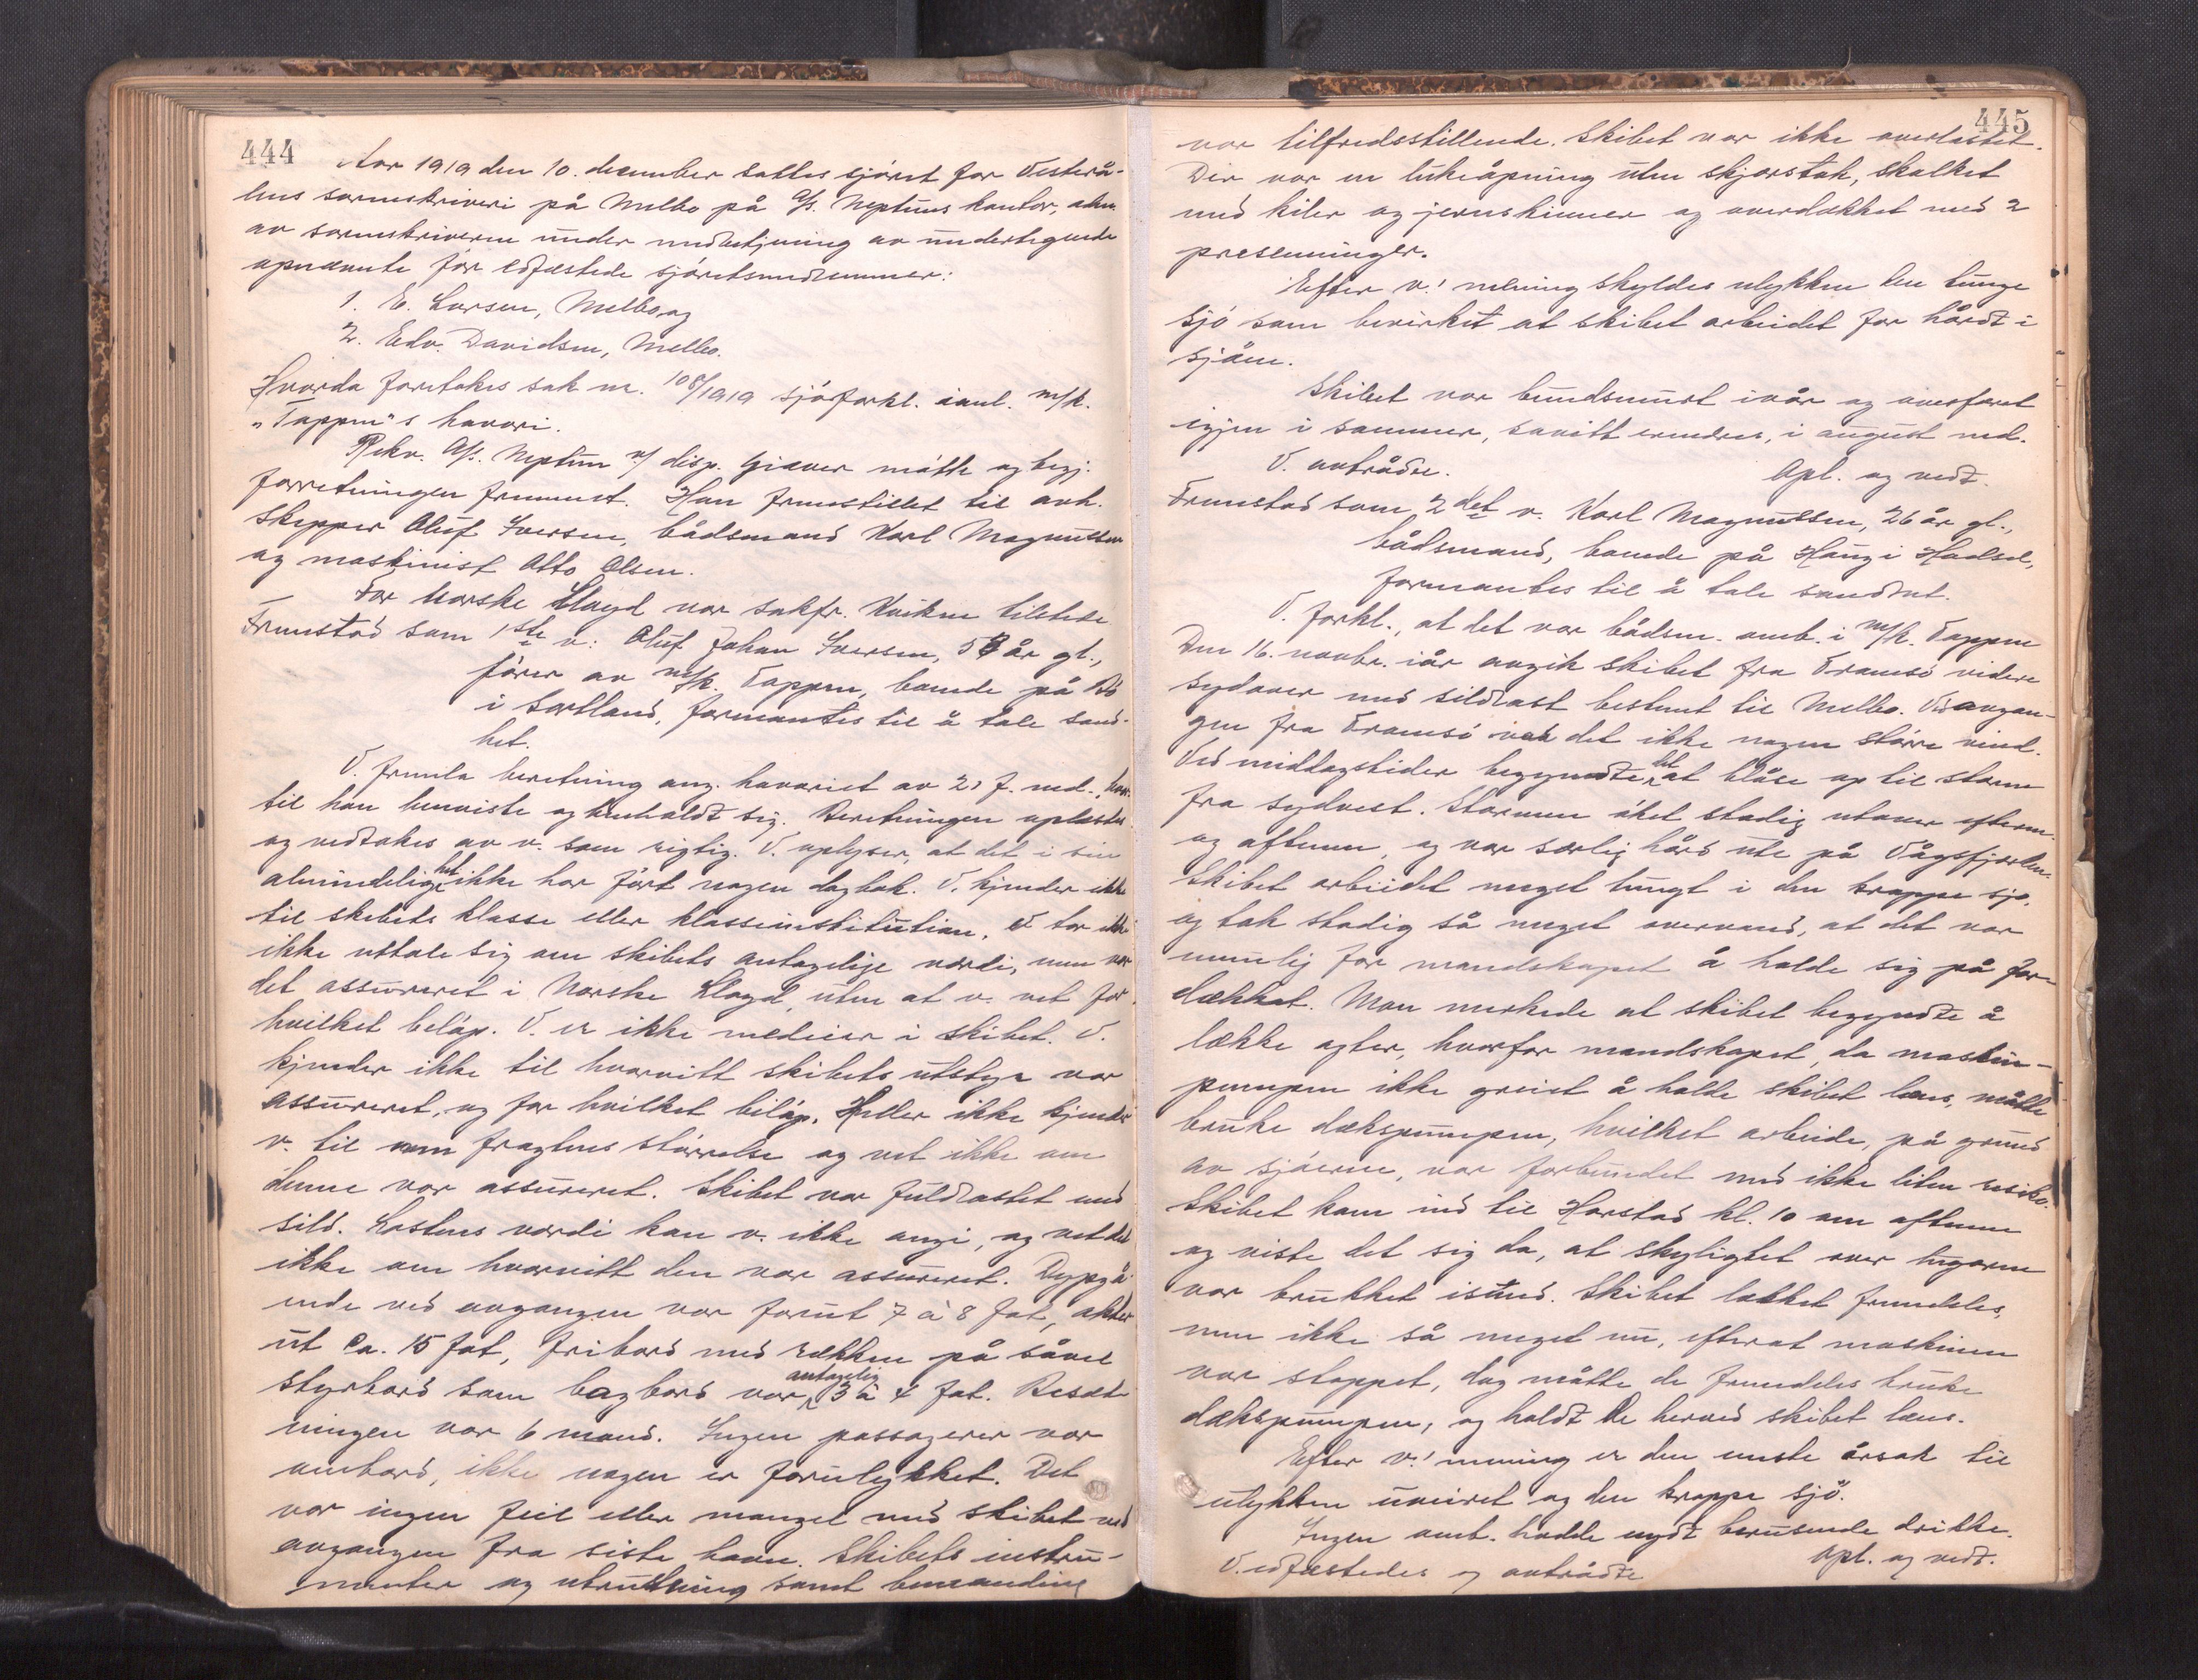 444
Aar 1919 den 10. december sattes sjóret for Vesterå-
lens sorenskriveri på Melbo på A/S. Neptuns kontor, adm.
av sorenskriveren under medbetjening av undertegnede
opnævnte før edfæstede sjóretsmedlemmer:
1. E. Larsen, Melbo, og
2. Edv. Davidsen, Melbo.
Hvorda foretokes sak nr. 108/1919 sjóforkl. i anl. m/k.
"Tappen"s havari.
Rekv. A/S. Neptun v/ disp. Giæver mótte og begj.
forretningen fremmet. Han fremstillet til avh.
Skipper Oluf Iversen, bådsmand Karl Magnussen
og maskinist Otto Olsen.
For Norske Lloyd var sakfr. Kvikne tilstede
Fremstod som 1ste v: Oluf Johan Iversen, år gl.,
fórer av m/k. Tappen, boende på Bó
i Sortland, formantes til å tale sand-
het.
V. fremla beretning ang. havariet av 21 f. md., hvor-
til han henviste og henholdt sig. Beretningen oplæstes
og vedtokes av v. som rigtig. V. oplyser, at det i sin
almindelighet ikke har fórt nogen dagbok. V. kjender ikke
til skibets klasse eller klasseinstitution. V tor ikke
ikke uttale sig om skibets antagelige værdi, men var
det assureret i Norske Lloyd, uten at v. vet for
hvilket belóp. V. er ikke medeier i skibet. V.
kjender ikke til hvorvitt skibets utstyr var
assureret, og for hvilket belóp. Heller ikke kjender
v. til fragtens stórrelse og vet ikke om
denne var assureret. Skibet var fuldlastet med
sild. Lastens værdi kan v. ikke angi, og vet det
ikke om hvorvitt den var assureret. Dypgå-
ende ved avgangen var forut 7 à 8 fot, akter
ut ca. 15 fot, fribord med rækken på såvel
styrbord som bagbord var antagelig 3 à 4 fot. Besæt-
ningen var 6 mand. Ingen passagerer var
ombord, ikke nogen er forulykket. Det
var ingen feil eller mangel med skibet ved
avgangen fra siste havn. Skibets instru-
menter og utrustning samt bemanding
445
var tilfredsstillende. Skibet var ikke overlastet.
Der var en lukeåpning uten skjærstok, skalket
med kiler og jernskinner og overdækket med 2
presenninger.
Efter v.' mening skyldes ulykken den tunge
sjó som bevirket at skibet arbeidet for hårdt i
sjóen.
Skibet var bundsmurt ivår og overfaret
igjen i sommer, savitt erindres, i august md.
V. avtrådte. Opl. og vedt.
Fremstod som 2det v. Karl Magnussen, 26 år gl.,
bådsmand, boende på Haug i Hadsel,
formantes til å tale sandhet.
V. forkl., at det var bådsm. omb. i m/k. Tappen
Den 16. novbr. iår avgik skibet fra Tromsó videre
sydover med sildlast bestemt til Melbo. Ved avgan-
gen fra Tromsó var det ikke nogen stórre vind.
Ved middagstider begyndte det at blåse op til storm
fra sydvest. Stormen óket stadig utover efterm.
og aftenen, og var særlig hård ute på Vågsfjorden.
Skibet arbeidet meget tungt i den krappe sjó,
og tok stadig så meget overvand, at det var
umulig for mandskapet å holde sig på for-
dækket. Man merkede at skibet begyndte å
lække agter, hvorfor mandskapet, da maskin-
pumpen ikke greiet å holde skibet læns, måtte
bruke dækspumpen, hvilket arbeide, på grund
av sjóerne, var forbundet med ikke liten resiko.
Skibet kom ind til Harstad kl. 10 om aftenen
og viste det sig da, at skyligtet over lugaren
var brukket istund. Skibet lækket fremdeles,
men ikke så meget nu, efterat maskinen
var stoppet, dog måtte de fremdeles bruke
dækspumpen, og holdt de herved skibet læns.
Efter v.' mening er den eneste årsak til
ulykken uveiret og den krappe sjó.
Ingen omb. hadde nydt berusende drikke.
V. edfæstedes og avtrådte Opl. og vedt.